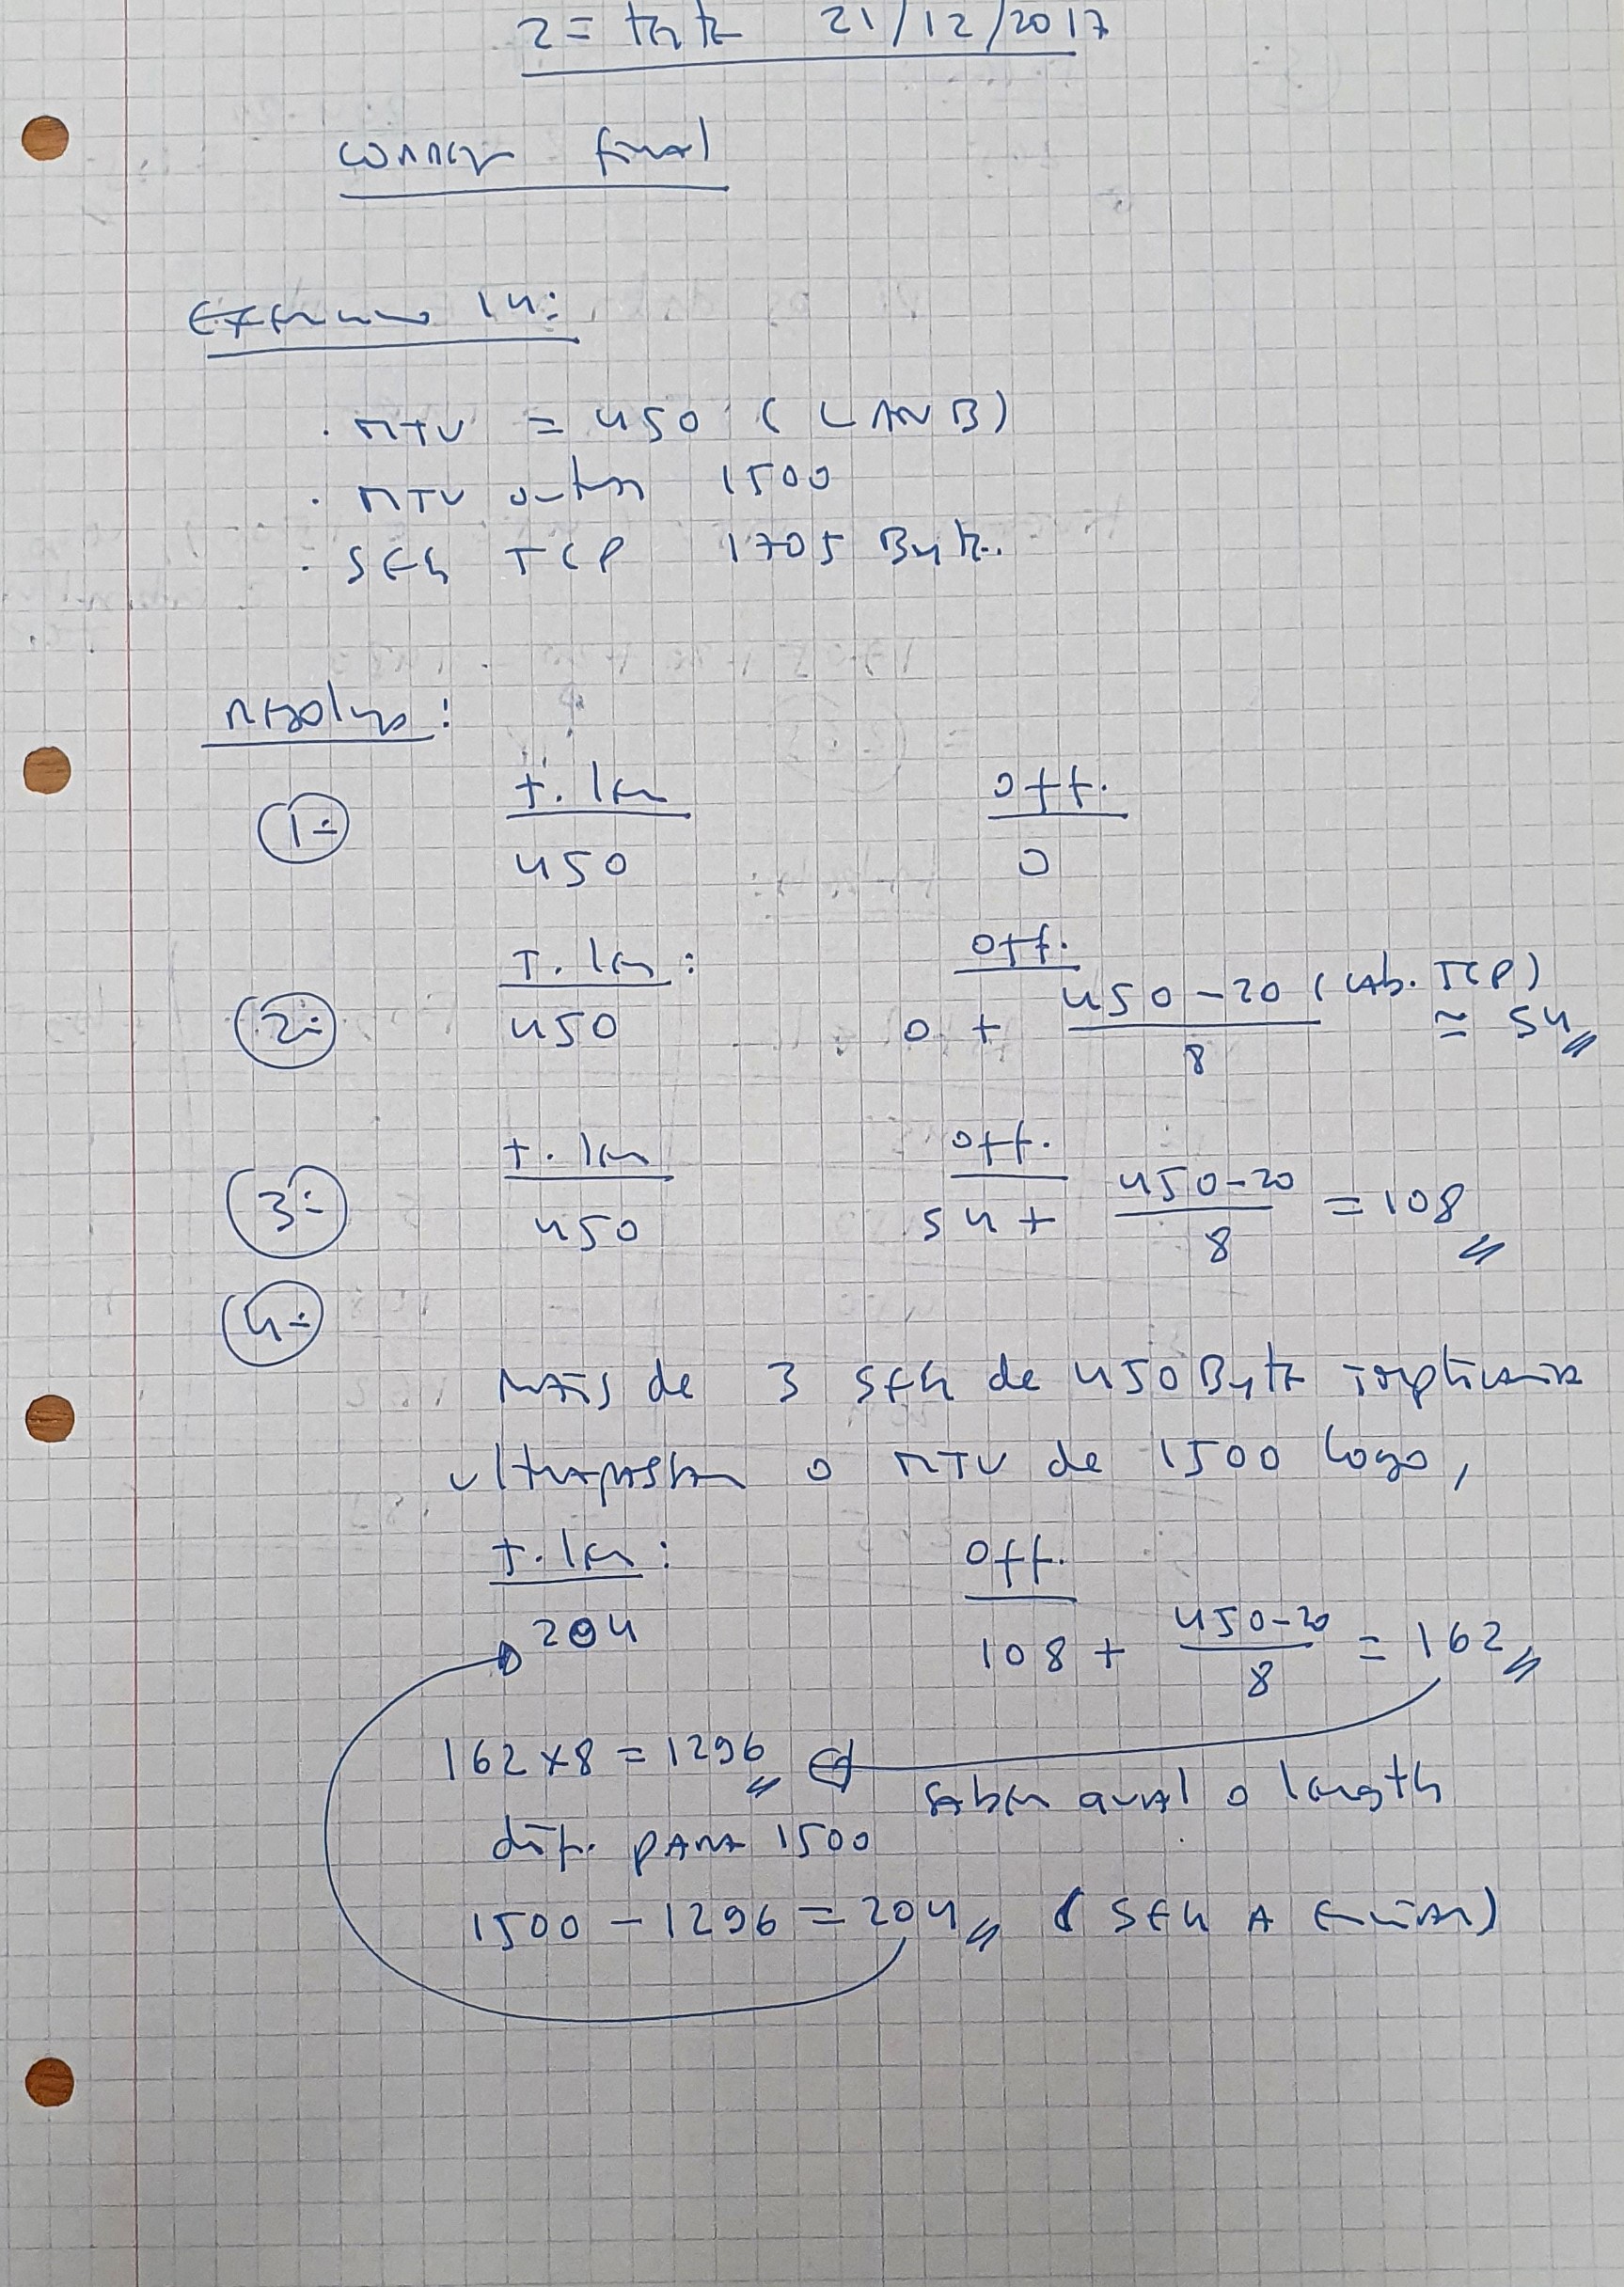 2º teste 21/12/2017
correção final
Exercício 14:
. MTU = 450 (LAN B)
. MTU outras 1500
. SEG TCP 1705 Bytes.
resolução:
1º
t. len off.
450 0
2º
T. len: off.
450 0 + 450-20 (cab. TCP) / 8 ≈ 54
3º
t. len off.
450 54 + 450-20 / 8 = 108
4º
MAIS de 3 SEG de 450 Byte implicaria
ultrapassar o MTU de 1500 logo,
t. len: off.
204 108 + 450-20 / 8 = 162
162x8 = 1296
saber qual o length
dif. PARA 1500
1500 - 1296 = 204 (SEG A Enviar)